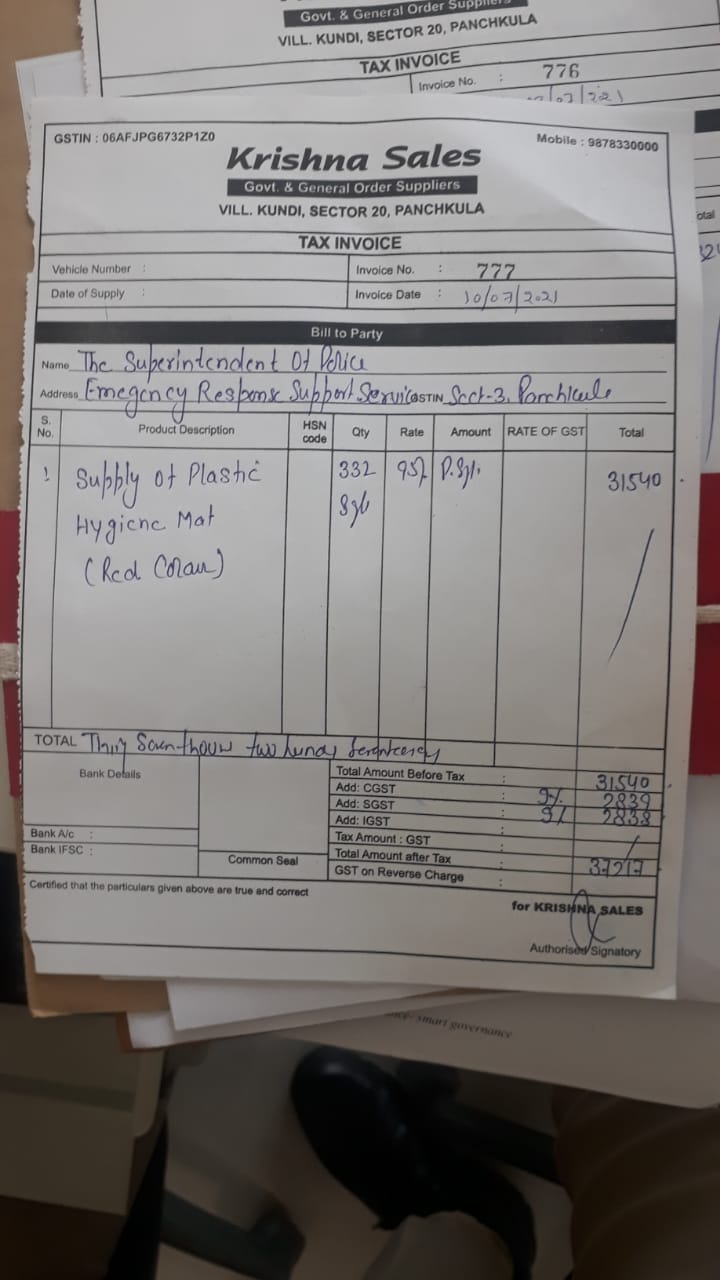 Govt. & General Order Suppliers
VILL. KUNDI, SECTOR 20, PANCHKULA
TAX INVOICE
Invoice No. : 776
/07/2021
GSTIN : 06AFJPG6732P1Z0
Mobile : 9878330000
Krishna Sales
Govt. & General Order Suppliers
VILL. KUNDI, SECTOR 20, PANCHKULA
TAX INVOICE
Vehicle Number : Invoice No. : 777
Date of Supply : Invoice Date : 10/07/2021
Bill to Party
Name The Superintendent Of Police
Address Emegency Response Support Service GSTIN Sect-3, Panchkula
S. No. Product Description HSN code Qty Rate Amount RATE OF GST Total
1 Supply of Plastic 332 95/. 31540
Hygiene Mat
(Red Colour)
TOTAL Thirty Seven thousand two hundred
Bank Details Total Amount Before Tax : 31540
Add: CGST : 9% 2839
Add: SGST : 9% 2838
Add: IGST :
Bank A/c : Tax Amount : GST :
Bank IFSC : Total Amount after Tax : 37217
Common Seal GST on Reverse Charge :
Certified that the particulars given above are true and correct
for KRISHNA SALES
Authorised Signatory
smart governance